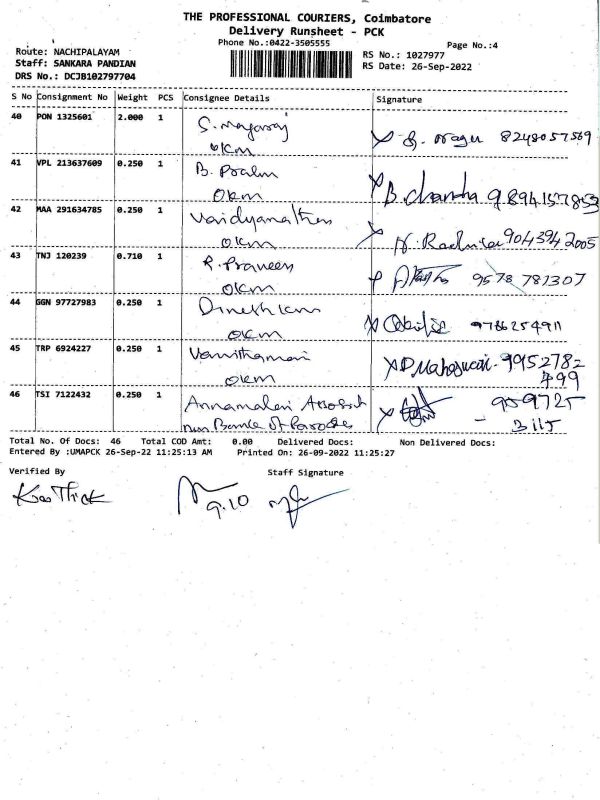 THE PROFESSIONAL COURIERS, Coimbatore
Delivery Runsheet - PCK
Phone No.:0422-3505555
Page No.:4
Route: NACHIPALAYAM
RS No.: 1027977
Staff: SANKARA PANDIAN
RS Date: 26-Sep-2022
DRS No.: DCJB102797704
S No Consignment No Weight PCS Consignee Details Signature
40 PON 1325601 2.000 1 S. 8248057569
OKM
41 VPL 213637609 0.250 1 B.
OKM B. Chandra 9894157853
42 MAA 291634785 0.250 1 Vaidyanathan
OKM 9043942005
43 TNJ 120239 0.710 1 R. Praveen
OKM 9578 781307
44 GGN 97727983 0.250 1 Dinesh
OKM 9786254911
45 TRP 6924227 0.250 1 9952782
OKM 499
46 TSI 7122432 0.250 1 Annamalai 959725
Bank of - 3115
Total No. Of Docs: 46 Total COD Amt: 0.00 Delivered Docs: Non Delivered Docs:
Entered By :UMAPCK 26-Sep-22 11:25:13 AM Printed On: 26-09-2022 11:25:27
Verified By Staff Signature
9.10